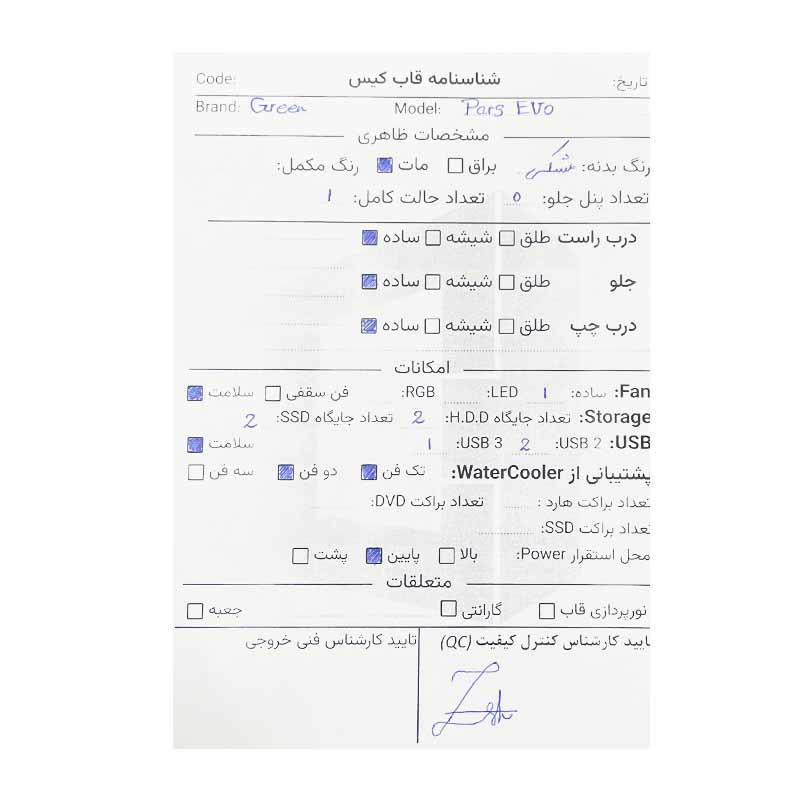 Code: شناسنامه قاب کیس تاریخ:
Brand: Green Model: Pars EVO
مشخصات ظاهری
رنگ بدنه: مشکی براق مات رنگ مکمل:
تعداد پنل جلو: 0 تعداد حالت کامل: 1
درب راست طلق شیشه ساده
جلو طلق شیشه ساده
درب چپ طلق شیشه ساده
امکانات
Fan: ساده: 1 LED: RGB: فن سقفی سلامت
Storage: تعداد جایگاه H.D.D: 2 تعداد جایگاه SSD: 2
USB: USB 2: 2 USB 3: 1 سلامت
پشتیبانی از WaterCooler: تک فن دو فن سه فن
تعداد براکت هارد : تعداد براکت DVD:
تعداد براکت SSD:
محل استقرار Power: بالا پایین پشت
متعلقات
نورپردازی قاب گارانتی جعبه
تایید کارشناس کنترل کیفیت (QC) تایید کارشناس فنی خروجی